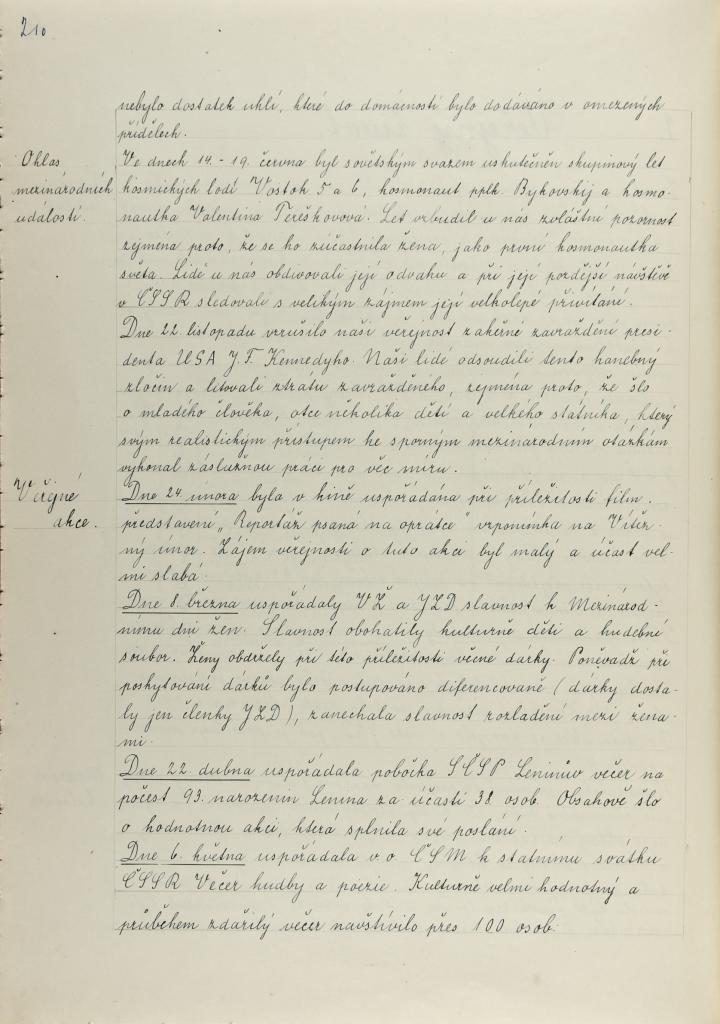 210
nebylo dostatek uhlí, které do domácností bylo dodáváno v omezených
přídělech.
Ohlas
mezinárodních
událostí.
Ve dnech 14. - 19. června byl sovětským svazem uskutečněn skupinový let
kosmických lodí Vostok 5 a 6, kosmonaut pplk. Bykovskij a kosmo-
nautka Valentina Těreškovová. Let vzbudil u nás zvláštní pozornost
zejména proto, že se ho zúčastnila žena, jako první kosmonautka
světa. Lidé u nás obdivovali její odvahu a při její pozdější návštěvě
v ČSSR sledovali s velikým zájmem její velkolepé přivítání.
Dne 22. listopadu vzrušilo naši veřejnost zákeřné zavraždění presi-
denta USA J. F. Kennedyho. Naši lidé odsoudili tento hanebný
zločin a litovali ztrátu zavražděného, zejména proto, že šlo
o mladého člověka, otce několika dětí a velkého státníka, který
svým realistickým přístupem ke sporným mezinárodním otázkám
vykonal záslužnou práci pro věc míru.
Veřejné
akce.
Dne 24. února byla v kině uspořádána při příležitosti film.
představení „Reportáž psaná na oprátce" vzpomínka na Vítěz-
ný únor. Zájem veřejnosti o tuto akci byl malý a účast vel-
mi slabá.
Dne 8. března uspořádaly VŽ a JZD slavnost k Mezinárod-
nímu dni žen. Slavnost obohatily kulturně děti a hudební
soubor. Ženy obdržely při této příležitosti věcné dárky. Poněvadž při
poskytování dárků bylo postupováno diferencovaně (dárky dosta-
ly jen členky JZD), zanechala slavnost rozladění mezi žena-
mi.
Dne 22. dubna uspořádala pobočka SČSP Leninův večer na
počest 93. narozenin Lenina za účasti 38 osob. Obsahově šlo
o hodnotnou akci, která splnila své poslání.
Dne 6. května uspořádala v o ČSM k státnímu svátku
ČSSR Večer hudby a poezie. Kulturně velmi hodnotný a
průběhem zdařilý večer navštívilo přes 100 osob.